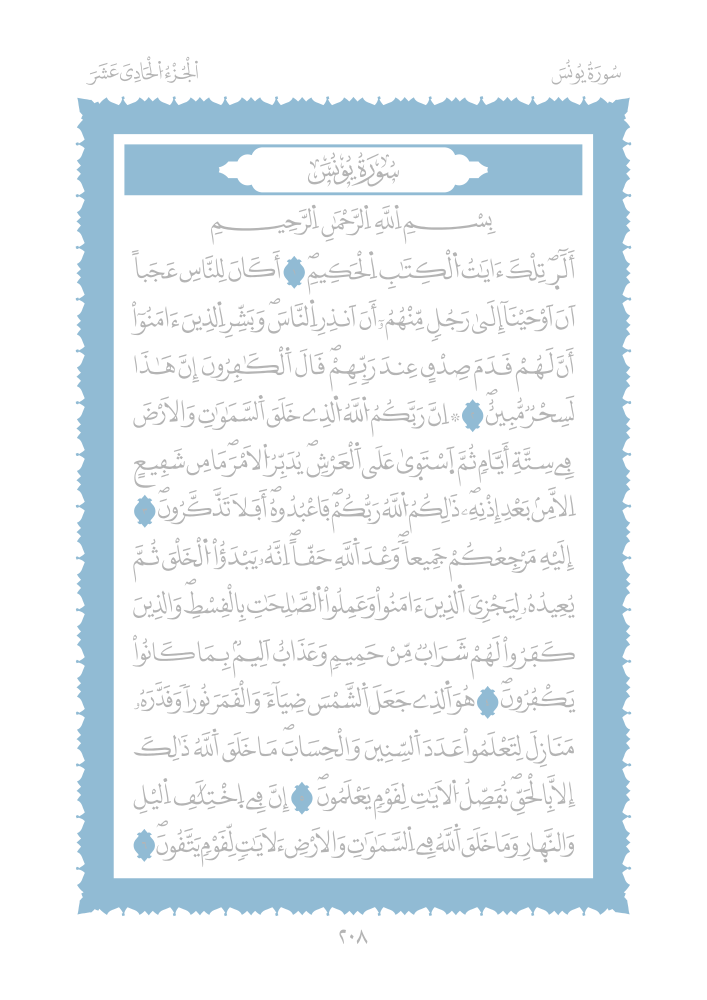 سُورَةُ يُونُسَ
اَلْجُزْءُ اَلْحَادِيَ عَشَرَ
سُورَةُ يُونُسَ
بِسْمِ اِللَّهِ اِلرَّحْمَٰنِ اِلرَّحِيمِ
أَلَٓرۖ تِلْكَ ءَايَٰتُ اُلْكِتَٰبِ اِلْحَكِيمِۖ أَكَانَ لِلنَّاسِ عَجَباً
اَنَ اَوْحَيْنَآ إِلَىٰ رَجُلٖ مِّنْهُمُۥٓ أَنَ اَنذِرِ اِلنَّاسَۖ وَبَشِّرِ اِلذِينَ ءَامَنُوٓاْ
أَنَّ لَهُمْ قَدَمَ صِدْقٍ عِندَ رَبِّهِمْۖ قَالَ اَلْكَٰفِرُونَ إِنَّ هَٰذَا
لَسِحْرٞ مُّبِينٌۖ ۞ اِنَّ رَبَّكُمُ اُللَّهُ اُلذِے خَلَقَ اَلسَّمَٰوَٰتِ وَالَارْضَ
فِے سِتَّةِ أَيَّامٖ ثُمَّ اَسْتَوَىٰ عَلَى اَلْعَرْشِۖ يُدَبِّرُ اُلَامْرَۖ مَا مِن شَفِيعٍ
اِلَّا مِنۢ بَعْدِ إِذْنِهِۦۖ ذَٰلِكُمُ اُللَّهُ رَبُّكُمْۖ فَاعْبُدُوهُۖ أَفَلَا تَذَّكَّرُونَۖ
إِلَيْهِ مَرْجِعُكُمْ جَمِيعاًۖ وَعْدَ اَللَّهِ حَقّاًۖ اِنَّهُۥ يَبْدَؤُاْ اُلْخَلْقَ ثُمَّ
يُعِيدُهُۥ لِيَجْزِيَ اَلذِينَ ءَامَنُواْ وَعَمِلُواْ اُلصَّٰلِحَٰتِ بِالْقِسْطِۖ وَالذِينَ
كَفَرُواْ لَهُمْ شَرَابٞ مِّنْ حَمِيمٖ وَعَذَابٌ اَلِيمُۢ بِمَا كَانُواْ
يَكْفُرُونَۖ هُوَ اَلذِے جَعَلَ اَلشَّمْسَ ضِيَآءٗ وَالْقَمَرَ نُوراٗ وَقَدَّرَهُۥ
مَنَازِلَ لِتَعْلَمُواْ عَدَدَ اَلسِّنِينَ وَالْحِسَابَۖ مَا خَلَقَ اَللَّهُ ذَٰلِكَ
إِلَّا بِالْحَقِّۖ نُفَصِّلُ اُلَايَٰتِ لِقَوْمٖ يَعْلَمُونَۖ إِنَّ فِے اِخْتِلَٰفِ اِليْلِ
وَالنَّهَارِ وَمَا خَلَقَ اَللَّهُ فِے اِلسَّمَٰوَٰتِ وَالَارْضِ ءَلَايَٰتٖ لِّقَوْمٖ يَتَّقُونَۖ
٢٠٨